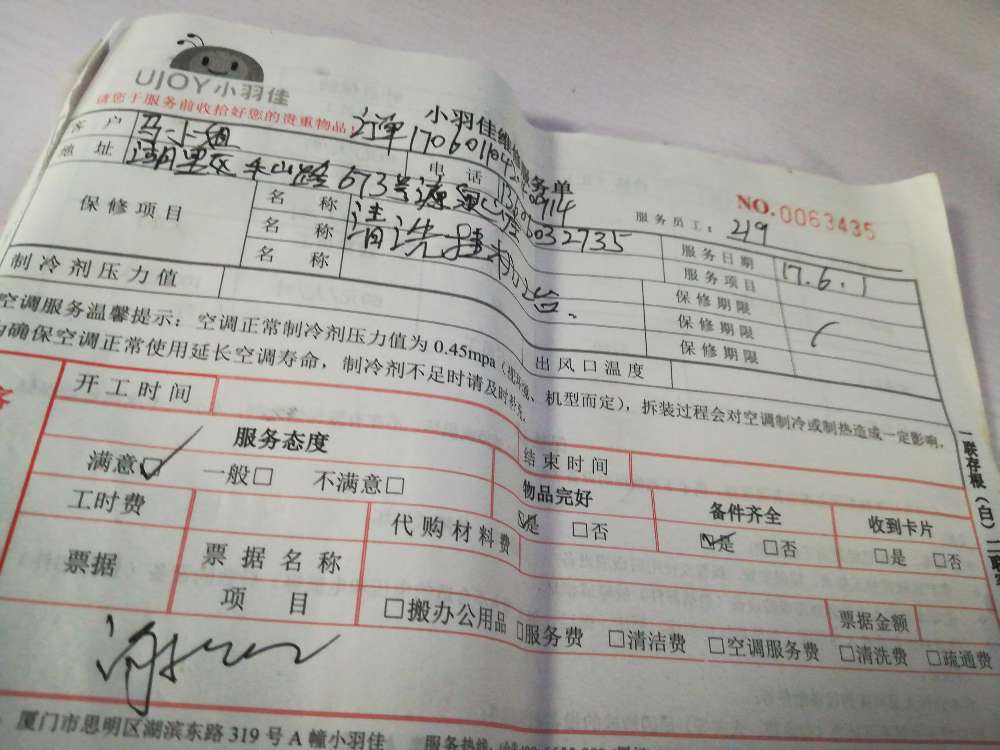 UJOY小羽佳
小羽佳维
务单
请您于服务前收拾好您的贵重物品！
NO.0063435
客户 马小姐
电话
服务员工：219
地址 湖里区 673号
服务日期 17.6.1
保修项目
名称 清洗挂机
服务项目
名称
保修期限
名称
保修期限
保修期限
制冷剂压力值
出风口温度
空调服务温馨提示：空调正常制冷剂压力值为0.45mpa 机型而定），拆装过程会对空调制冷或制热造成一定影响，
为确保空调正常使用延长空调寿命，制冷剂不足时请及时补充。
开工时间
结束时间
服务态度
物品完好
备件齐全
收到卡片
满意☑ 一般□ 不满意□
☑是 □否
☑是 □否
□是 □否
工时费
代购材料费
票据
票据名称
票据金额
项目
□搬办公用品 □服务费 □清洁费 □空调服务费 □清洗费 □疏通费
厦门市思明区湖滨东路319号A幢小羽佳
服务热线：
一联存根（白）二联